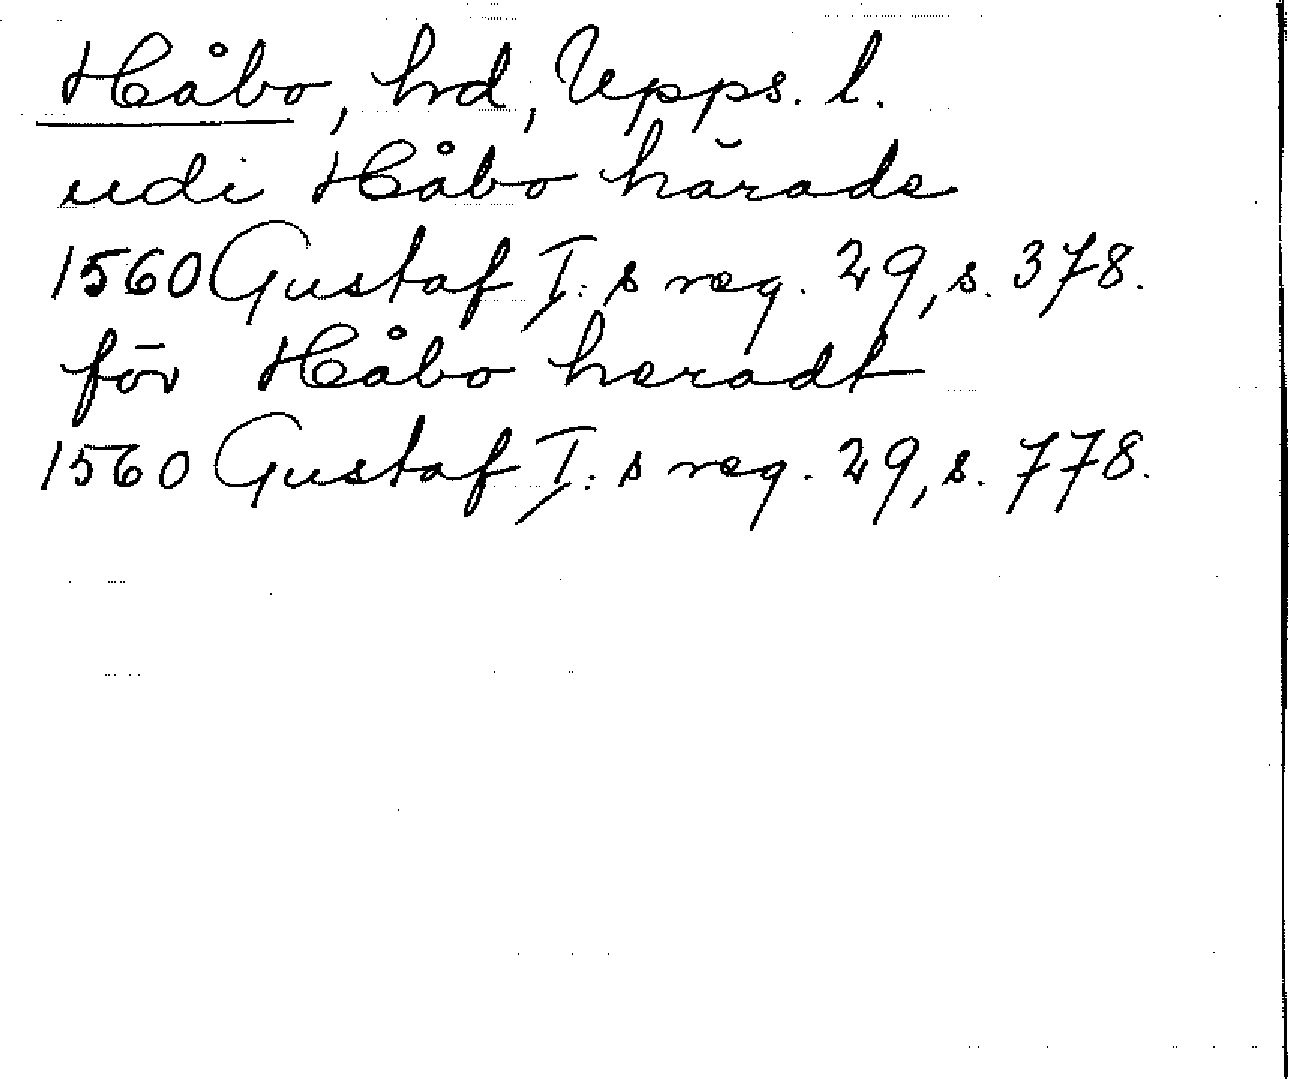 Håbo, hrd, Upps. l.
udi Håbo härade
1560 Gustaf I:s reg. 29, s. 378.
för Håbo heradt
1560 Gustaf I:s reg. 29, s. 778.